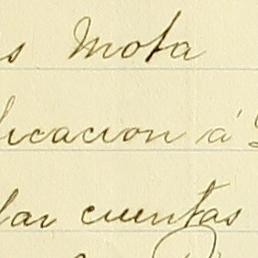 s Mota
licacion á
lar cuentas